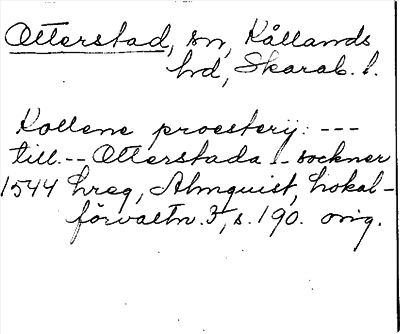 Otterstad, sn, Kållands
hd, Skarab. l.
Kollene proesterij: ---
till.-- Otterstada - sockner
1544 hreg, Almquist, Lokal-
förvaltn. 3, s. 190. orig.